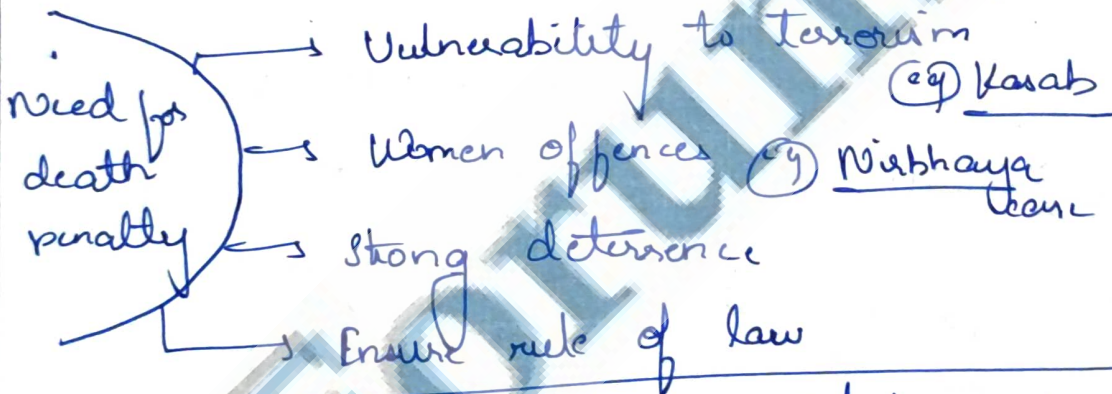 Need for death penalty
Vulnerability to terrorism
eg Kasab
Women offences eg Nirbhaya case
Strong deterrence
Ensure rule of law
Forum